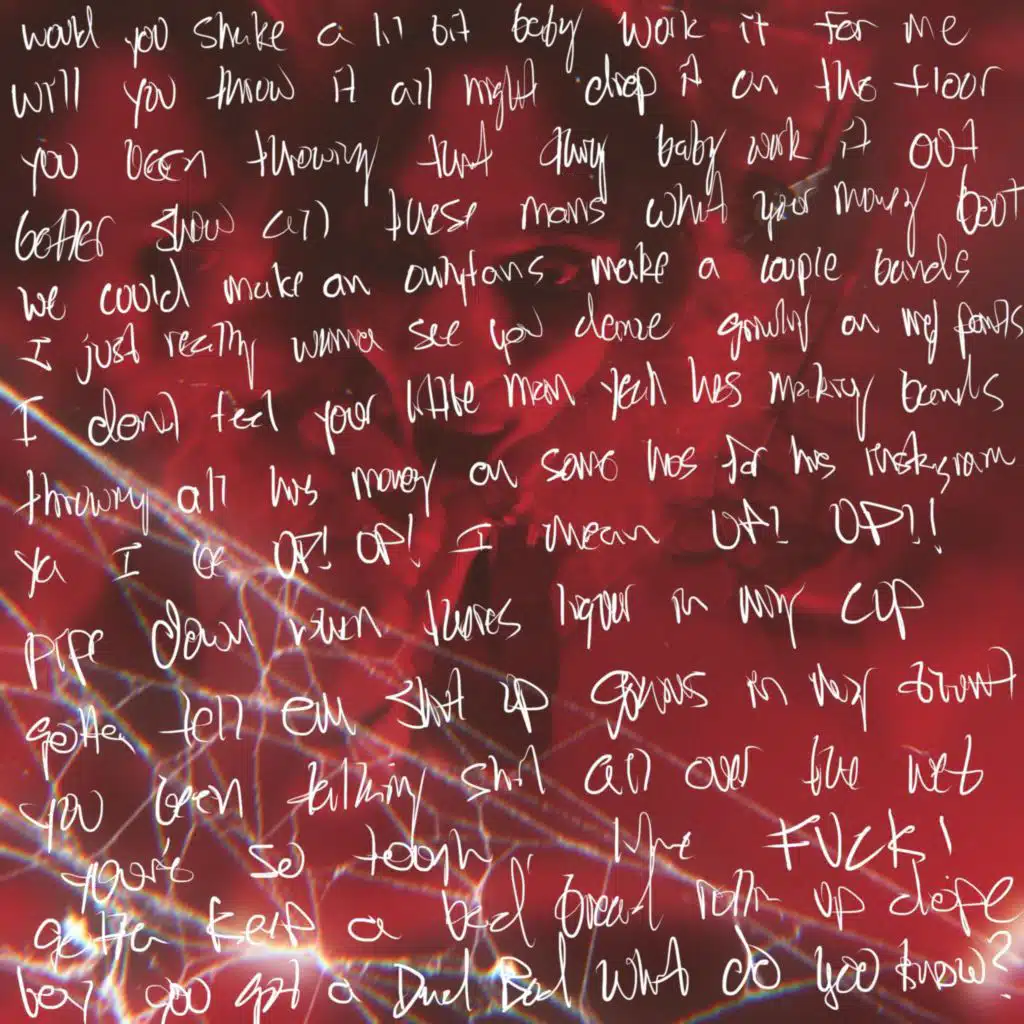 would you shake a lil bit baby work it for me
will you throw it all night drop it on the floor
you been throwing that thing baby work it out
better show all these mans what your money bout
we could make an onlyfans make a couple bands
I just really wanna see you dance grindin on my pants
I don't feel your little man yeah hes making bands
throwing all his money on some hos for his instagram
ya I be UP! UP! I mean UP! UP!!
pipe down when theres liquor in my cup
gotta tell em shut up in my
you been talking shit all over the web
your's so tough, like FUCK!
gotta keep a bad rollin up dope
boy you got a Dud Bod what do you know?